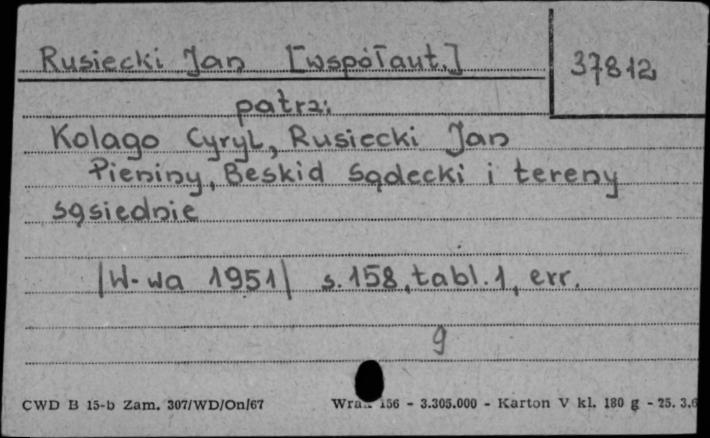 Rusiecki Jan [współaut.]
37812
patrz:
Kolago Cyryl, Rusiecki Jan
Pieniny, Beskid Sądecki i tereny
sąsiednie
|W-wa 1951| s. 158, tabl. 1, err.
9
CWD B 15-b Zam. 307/WD/On/67 156 - 3.305.000 - Karton V kl. 180 g - 25. 3.6